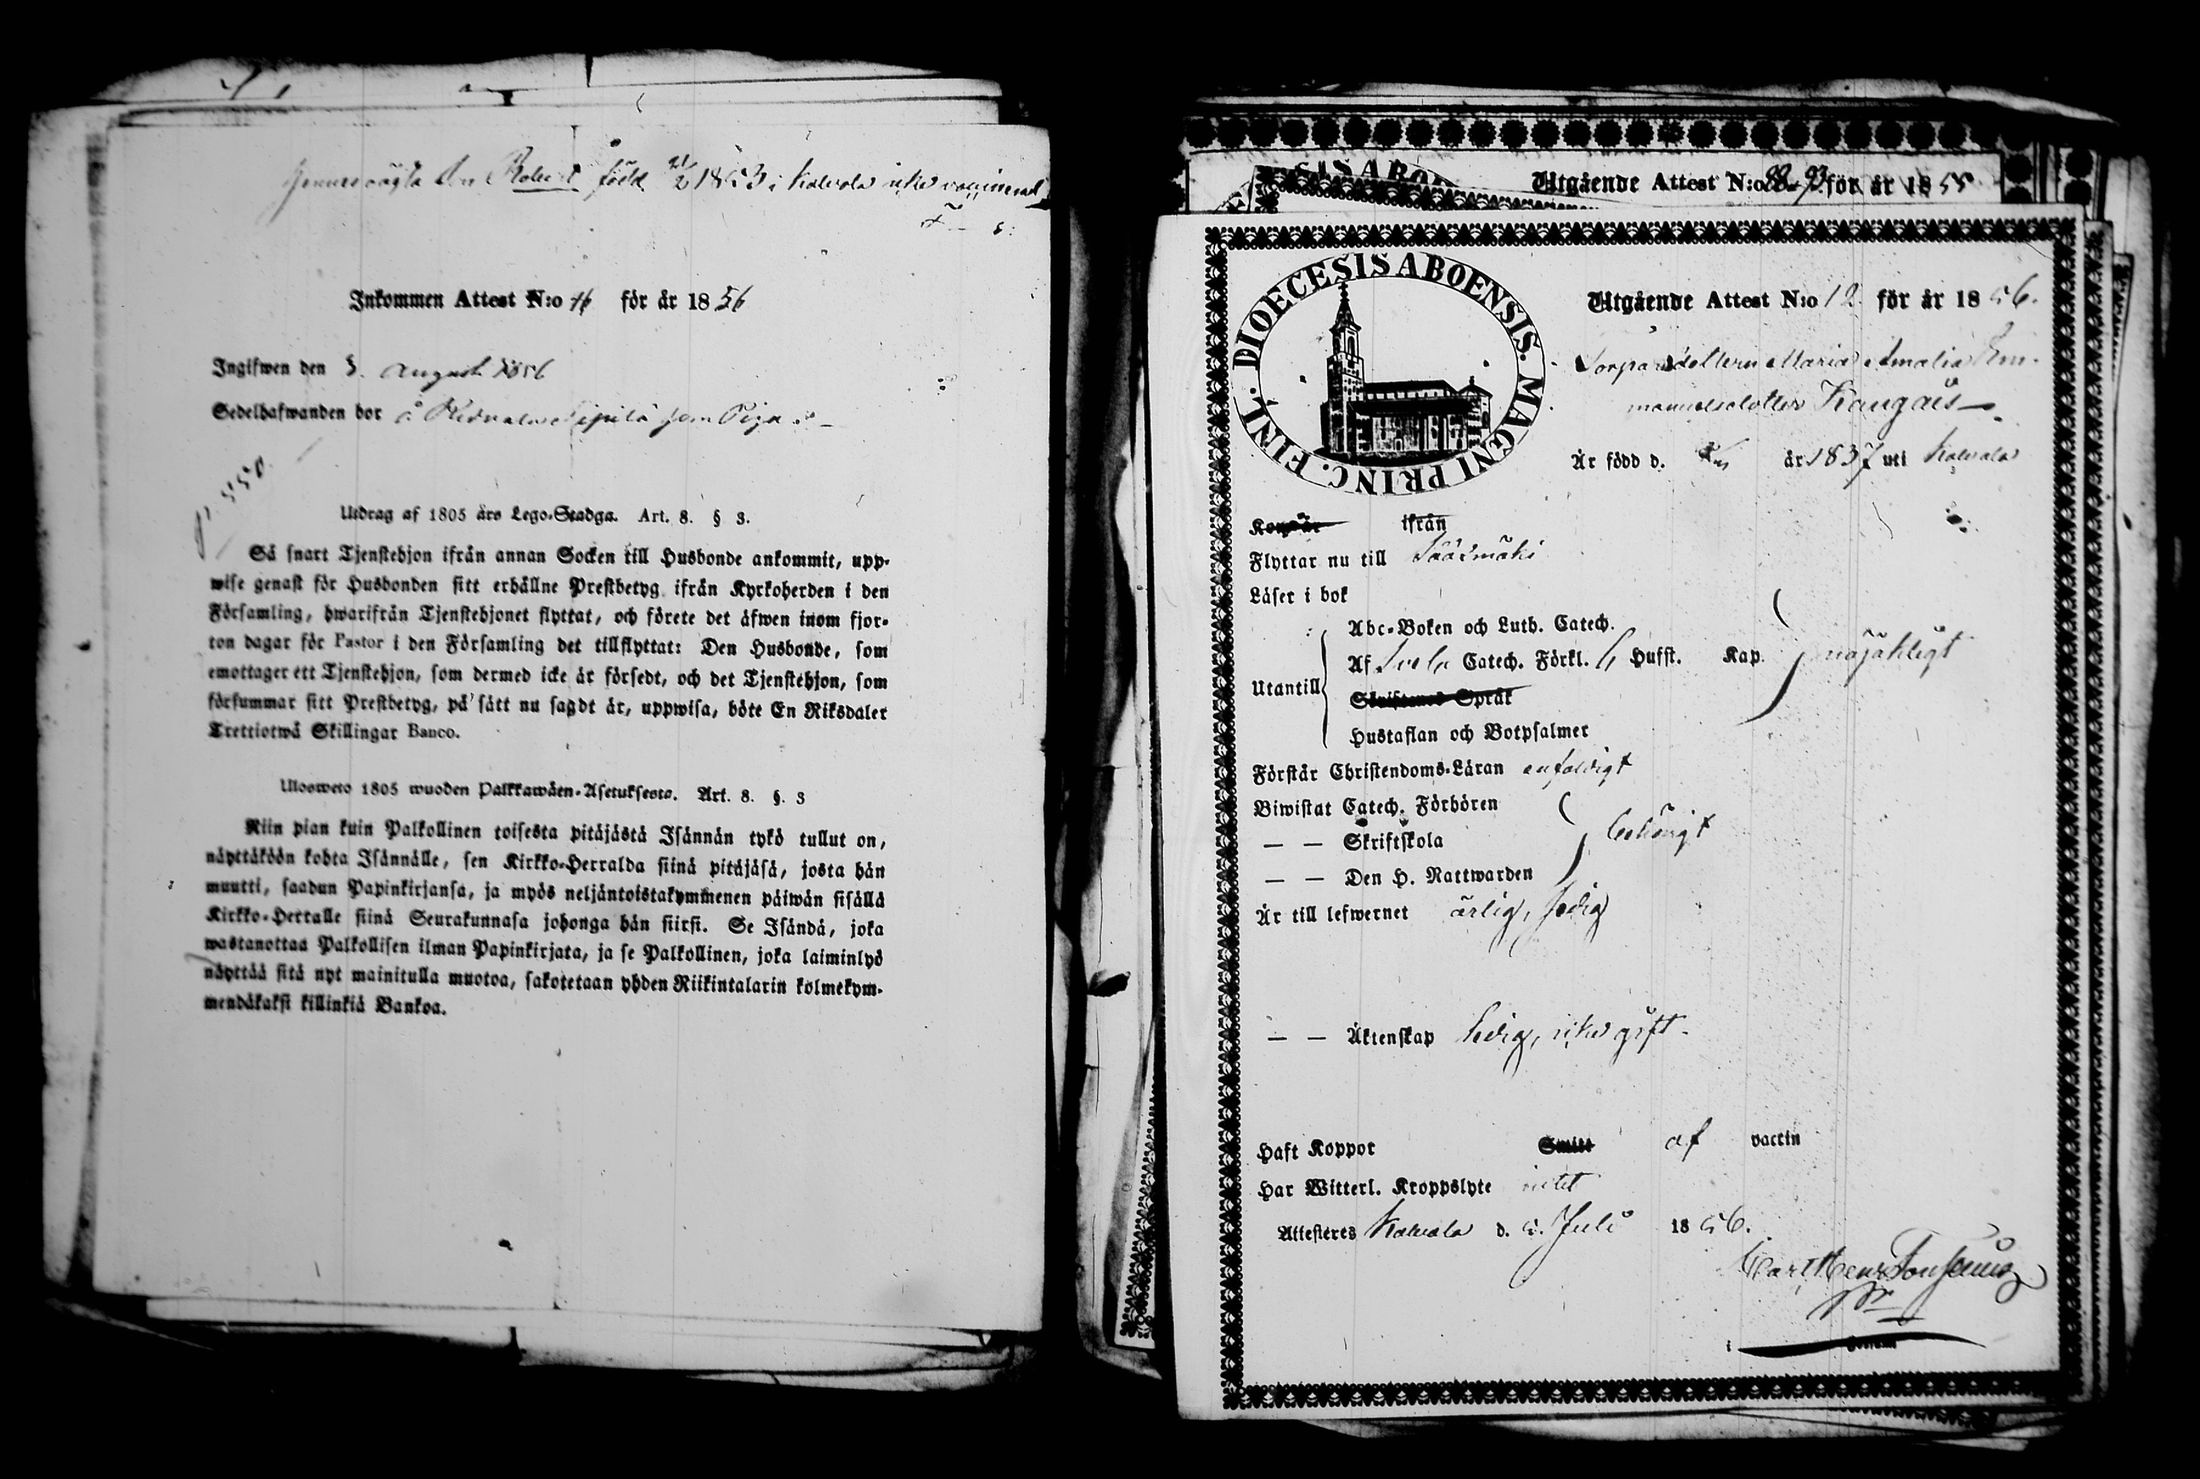 son Robert född 21/2 1853 i Kalvola icke vaccinerad
Inkommen Attest N:o 16 för år 1856
Ingifwen den 3. august 1856
Sedelhafwanden bor å Sipilä som Piga
Utdrag af 1805 års Lego-Stadga. Art. 8. § 3.
Så snart Tjenstehjon ifrån annan Socken till Husbonde ankommit, upp-
wise genast för Husbonden sitt erhållne Prestbetyg ifrån Kyrkoherden i den
Församling, hwarifrån Tjenstehjonet flyttat, och förete det äfwen inom fjor-
ton dagar för Pastor i den Församling det tillflyttat: Den Husbonde, som
emottager ett Tjenstehjon, som dermed icke är försedt, och det Tjenstehjon, som
försummar sitt Prestbetyg, på sätt nu sagdt är, uppwisa, böte En Riksdaler
Trettiotwå Skillingar Banco.
Ulosweto 1805 wuoden Palkkawäen-Asetuksesta. Art. 8. §. 3
Niin pian kuin Palkollinen toisesta pitäjästä Isännän tykö tullut on,
näyttäköön kohta Isännälle, sen Kirkko-Herralda siinä pitäjäsä, josta hän
muutti, saadun Papinkirjansa, ja myös neljäntoistakymmenen päiwän sisällä
Kirkko-Herralle siinä Seurakunnasa johonga hän siirsi. Se Isändä, joka
wastanottaa Palkollisen ilman Papinkirjata, ja se Palkollinen, joka laiminlyö
näyttää sitä nyt mainitulla muotoa, sakotetaan yhden Riikintalarin kolmekym-
mendäkaksi killinkiä Bankoa.
Utgående Attest N:o för år 1855
DIOECESIS ABOENSIS. MAGNI PRINC. FINL.
Utgående Attest N:o 12 för år 1856.
Torparedottern Maria Amalia Em-
manuelsdotter Kangais
Är född d. år 1837 uti Kalvola
Kom är ifrån
Flyttar nu till Sääxmäki
Läser i bok
Abc-Boken och Luth. Catech.
Af Svebel Catech. Förkl. 6 Hufst. Kap. nöjaktigt
Utantill
Skriftenes Språk
Hustaflan och Botpsalmer
Förstår Christendoms-Läran enfaldigt
Biwistat Catech. Förhören
— — Skriftskola behörigt
— — Den H. Nattwarden
Är till lefwernet ärlig, sedig
— — Äktenskap ledig, icke gift.
Haft Koppor Smitt af vaccin
Har Witterl. Kroppslyte intet
Attesteres Kalvola d. 5. Juli 1856.
Carl Henr
i